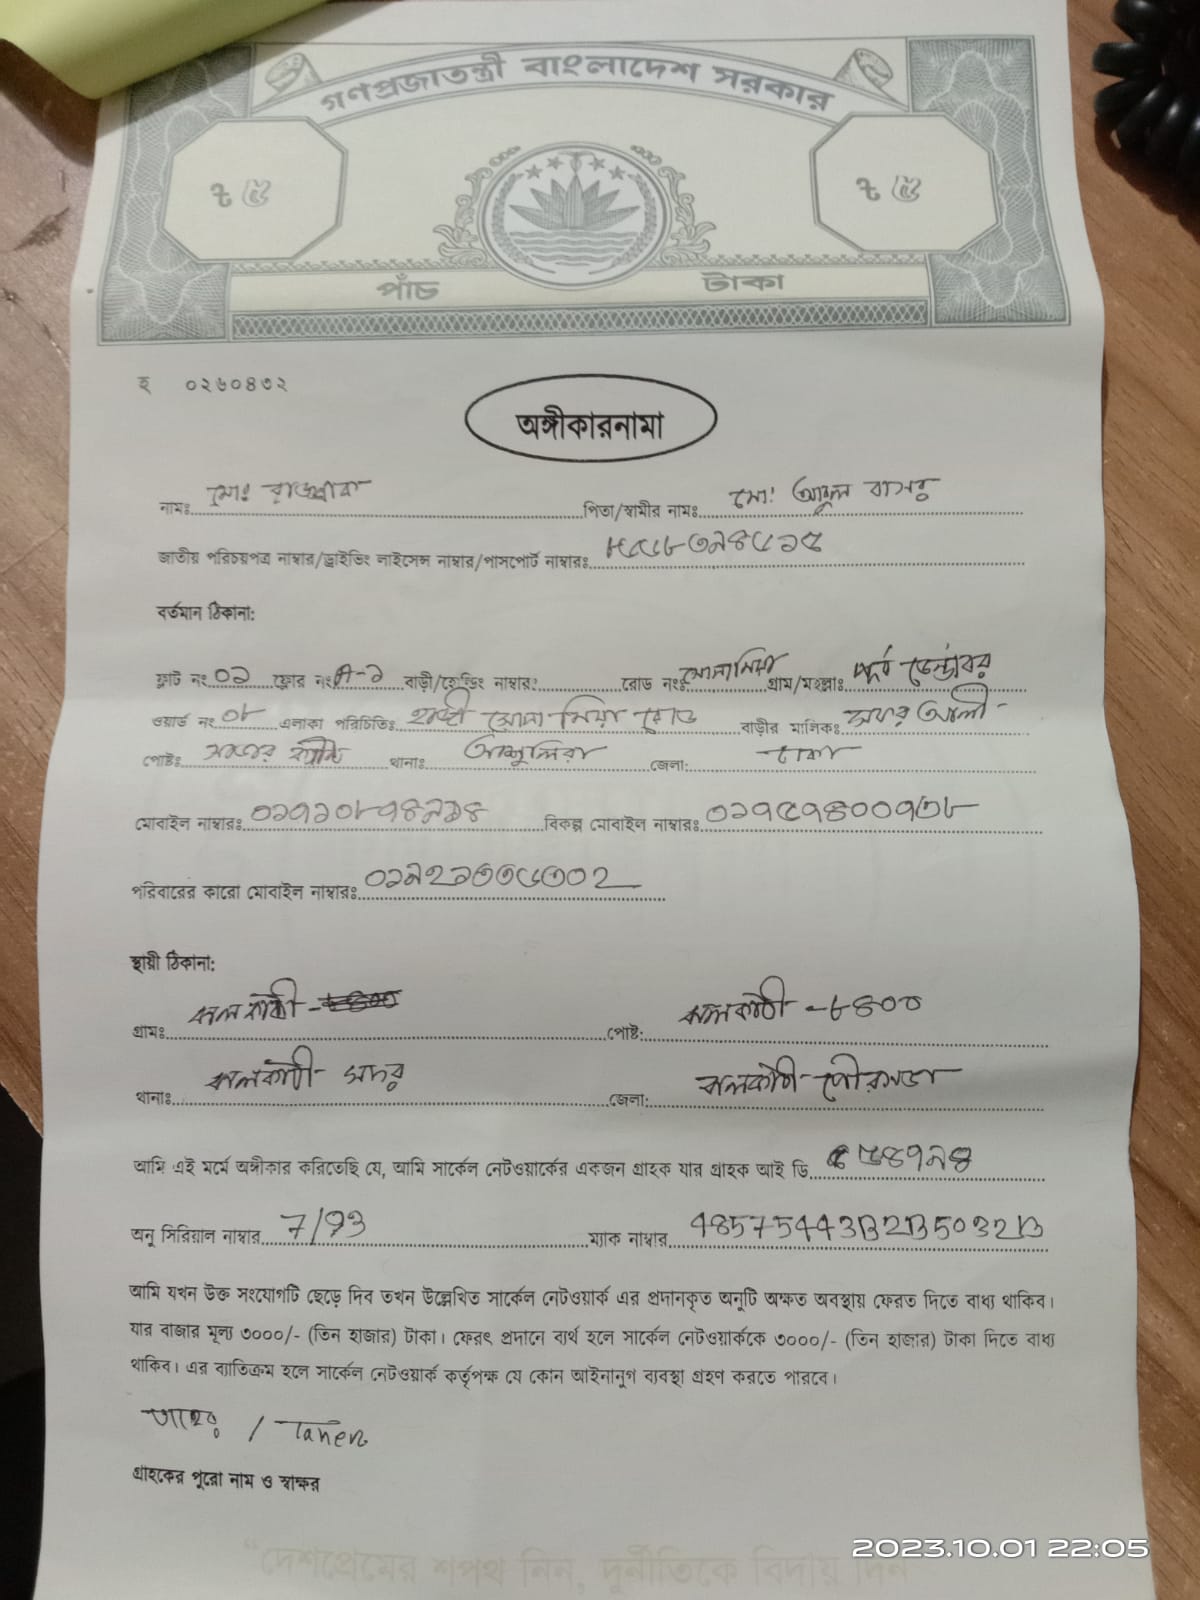 গণপ্রজাতন্ত্রী বাংলাদেশ সরকার
ট ৫ ট ৫
পাঁচ টাকা
হ ০২৬০৪৩২
অঙ্গীকারনামা
নামঃ মোঃ পিতা/স্বামীর নামঃ মো: আবুল বাসার
জাতীয় পরিচয়পত্র নাম্বার/ড্রাইভিং লাইসেন্স নাম্বার/পাসপোর্ট নাম্বারঃ
বর্তমান ঠিকানা:
ফ্লাট নং ০১ ফ্লোর নং A-১ বাড়ী/হোল্ডিং নাম্বার: রোড নংঃ সোনামিয়া গ্রাম/মহল্লাঃ পূর্ব ডেন্ডাবর
ওয়ার্ড নং ০৮ এলাকা পরিচিতিঃ হাজী সোনা মিয়া রোড বাড়ীর মালিকঃ আলী
পোষ্টঃ সাভার থানাঃ আশুলিয়া জেলা: ঢাকা
মোবাইল নাম্বারঃ ০১৭১০৮৭৪৯১৪ বিকল্প মোবাইল নাম্বারঃ ০১৭৫৭৪০০৭৩৮
পরিবারের কারো মোবাইল নাম্বারঃ ০১৯২১৩৩৬৩০২
স্থায়ী ঠিকানা:
গ্রামঃ ঝালকাঠী - পোষ্ট: ঝালকাঠী -৮৪০০
থানাঃ ঝালকাঠী সদর জেলা: ঝালকাঠী পৌরসভা
আমি এই মর্মে অঙ্গীকার করিতেছি যে, আমি সার্কেল নেটওয়ার্কের একজন গ্রাহক যার গ্রাহক আই ডি
অনু সিরিয়াল নাম্বার 7/93 ম্যাক নাম্বার 485754443B2B5032B
আমি যখন উক্ত সংযোগটি ছেড়ে দিব তখন উল্লেখিত সার্কেল নেটওয়ার্ক এর প্রদানকৃত অনুটি অক্ষত অবস্থায় ফেরত দিতে বাধ্য থাকিব।
যার বাজার মূল্য ৩০০০/- (তিন হাজার) টাকা। ফেরৎ প্রদানে ব্যর্থ হলে সার্কেল নেটওয়ার্ককে ৩০০০/- (তিন হাজার) টাকা দিতে বাধ্য
থাকিব। এর ব্যাতিক্রম হলে সার্কেল নেটওয়ার্ক কর্তৃপক্ষ যে কোন আইনানুগ ব্যবস্থা গ্রহণ করতে পারবে।
তাহের / Taher
গ্রাহকের পুরো নাম ও স্বাক্ষর
"দেশপ্রেমের শপথ নিন, দুর্নীতিকে বিদায় দিন"
2023.10.01 22:05